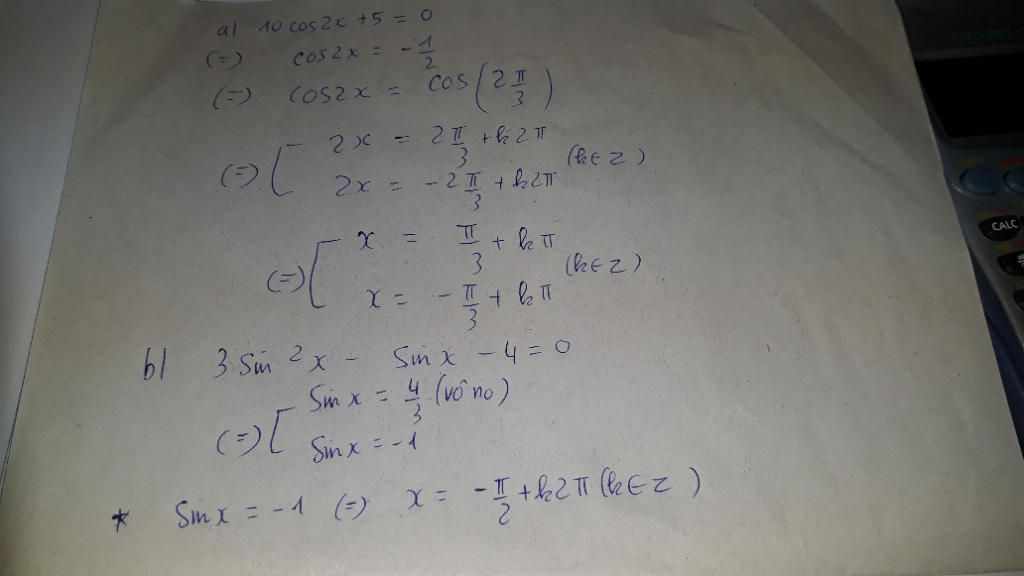 a) 10 cos2x + 5 = 0
(=) cos2x = -1/2
(=) cos2x = cos(2π/3)
(=) [ 2x = 2π/3 + k2π
2x = -2π/3 + k2π (k∈Z)
(=) [ x = π/3 + kπ
x = -π/3 + kπ (k∈Z)
b) 3 Sin²x - Sinx - 4 = 0
(=) [ Sinx = 4/3 (vô no)
Sinx = -1
* Sinx = -1 (=) x = -π/2 + k2π (k∈Z)
CALC